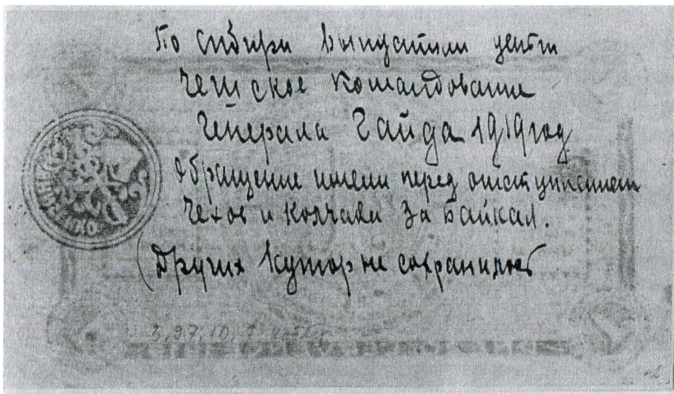 По сибири выпустили деньги
чешское командование
Генерала Гайда 1919 год
обращение имели перед отступлением
чехов и колчака За Байкал.
(Других купюр не сохранилось